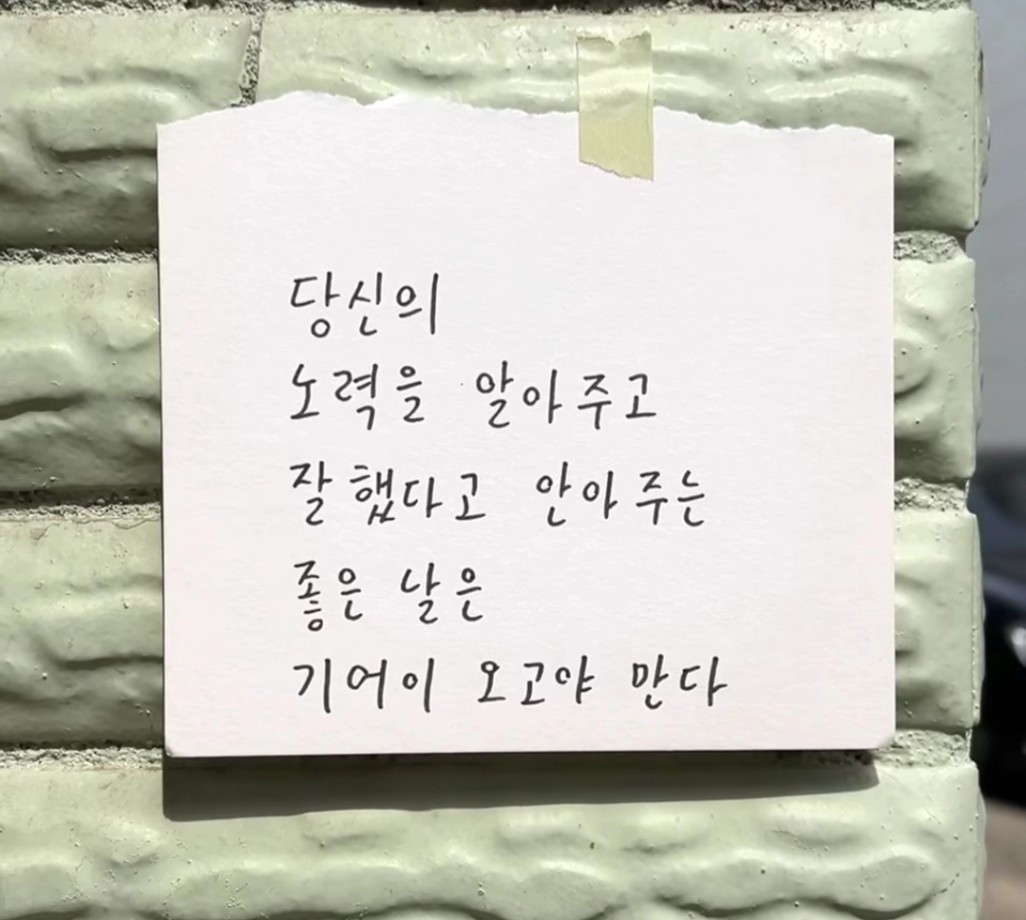 당신의
노력을 알아주고
잘했다고 안아주는
좋은 날은
기어이 오고야 만다